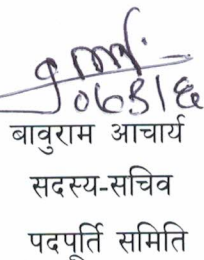 बाबुराम आचार्य
सदस्य-सचिव
पदपूर्ति समिति